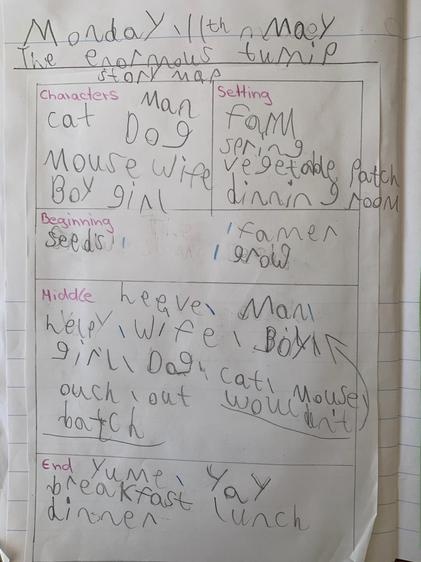 Monday 11th May
The enormous turnip
story map
Characters
Man
cat
Dog
Mouse wife
Boy girl
Setting
farm
spring
vegetable patch
dinning room
Beginning
seeds
famer
grow
Middle
heeve, Man
help, wife, Boy
girl, Dog, cat, Mouse
ouch, out wouldn't
batch
End
Yume, Yay
breakfast
dinner lunch